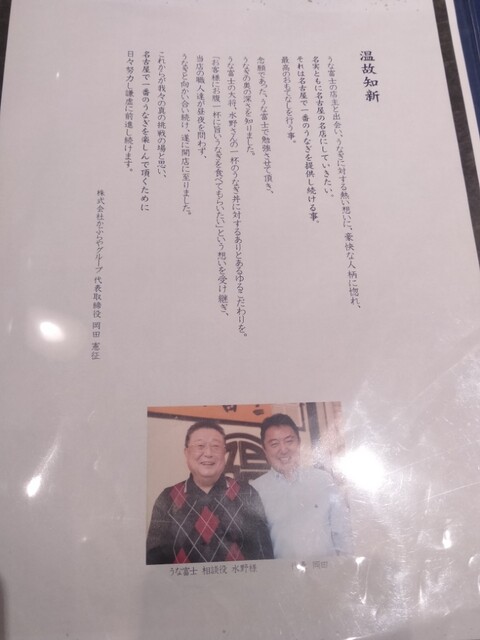 温故知新
うな富士の店主と出会い、うなぎに対する熱い想いに、豪快な人柄に惚れ、
名実ともに名古屋の名店にしていきたい。
それは名古屋で一番のうなぎを提供し続ける事。
最高のおもてなしを行う事。
念願であった、うな富士で勉強させて頂き、
うなぎの奥の深さを知りました。
うな富士の大将、水野さんの一杯のうなぎ丼に対するありとあらゆるこだわりを。
「お客様にお腹一杯に旨いうなぎを食べてもらいたい」という想いを受け継ぎ、
当店の職人達が昼夜を問わず、
うなぎと向かい合い続け、遂に開店に至りました。
これからが我々の真の挑戦の場と思い、
名古屋で一番のうなぎを楽しんで頂くために
日々努力し謙虚に前進し続けます。
株式会社かぶらやグループ 代表取締役 岡田 憲征
うな富士 相談役 水野様
岡田